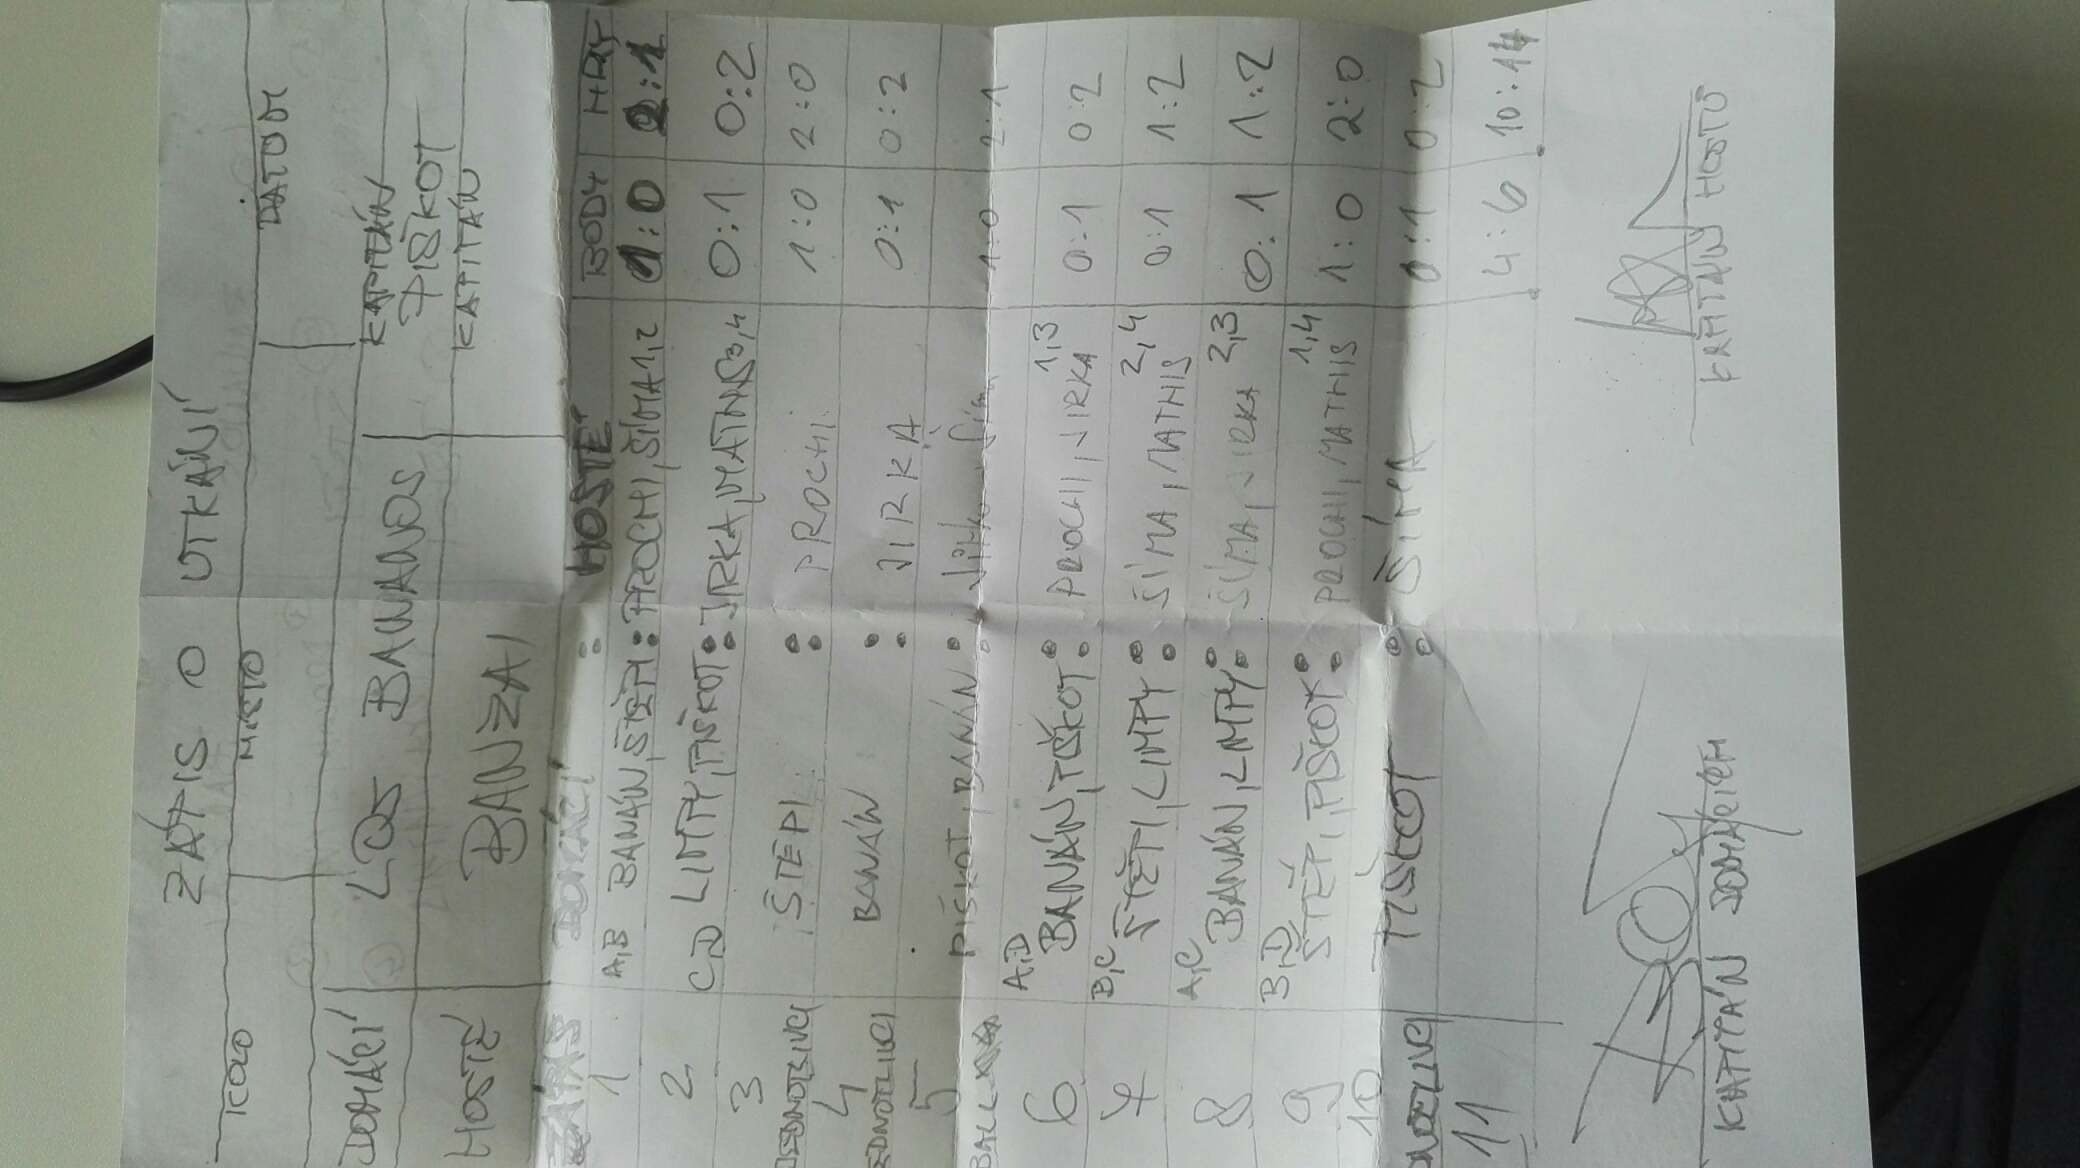 ZÁPIS O UTKÁNÍ
KOLO MÍSTO DATUM
DOMÁCÍ LOS BANANOS KAPITÁN PIŠKOT
HOSTÉ BANZAI KAPITÁN
ZÁPAS DOMÁCÍ : HOSTÉ BODY HRY
1 A,B BANÁN, ŠTĚPI : PROCHI, ŠÍMA 1,2 1:0 2:1
2 C,D LIMPY, PIŠKOT : JIRKA, MATHIS 3,4 0:1 0:2
3 JEDNOTLIVCI ŠTĚPI : PROCHI 1:0 2:0
4 JEDNOTLIVCI BANÁN : JIRKA 0:1 0:2
5 PIŠKOT, BANÁN : 1:0 2:1
6 A,D BANÁN, PIŠKOT : PROCHI, JIRKA 1,3 0:1 0:2
7 B,C ŠTĚPI, LIMPY : ŠÍMA, MATHIS 2,4 0:1 1:2
8 A,C BANÁN, LIMPY : ŠÍMA, JIRKA 2,3 0:1 1:2
9 B,D ŠTĚPI, PIŠKOT : PROCHI, MATHIS 1,4 1:0 2:0
10 PIŠKOT : ŠÍMA 0:1 0:2
11 4:6 10:14
KAPITÁN DOMÁCÍCH KAPITÁN HOSTŮ